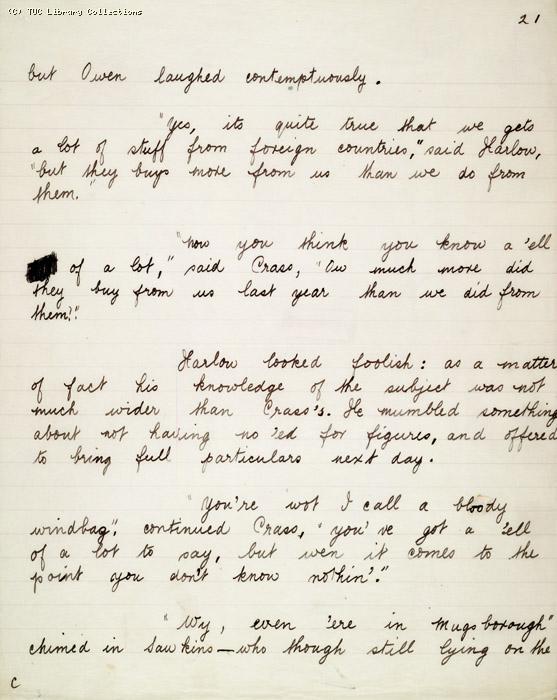 (C) TUC Library Collections
21
but Owen laughed contemptuously.
"Yes, its quite true that we gets
a lot of stuff from foreign countries," said Harlow,
"but they buys more from us than we do from
them."
"Now you think you know a 'ell
of a lot," said Crass, "Ow much more did
they buy from us last year than we did from
them?"
Harlow looked foolish: as a matter
of fact his knowledge of the subject was not
much wider than Crass's. He mumbled something
about not having no 'ed for figures, and offered
to bring full particulars next day.
"You're wot I call a bloody
windbag", continued Crass, "you've got a 'ell
of a lot to say, but wen it comes to the
point you don't know nothin'."
"Wy, even 'ere in Mugsborough"
chimed in Sawkins—who though still lying on the
C